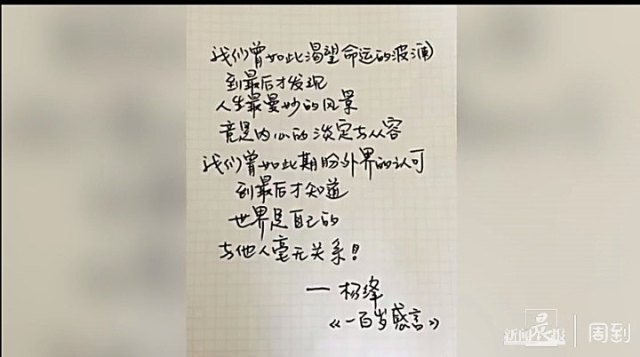 我们曾如此渴望命运的波澜
到最后才发现
人生最曼妙的风景
竟是内心的淡定与从容
我们曾如此期盼外界的认可
到最后才知道
世界是自己的
与他人毫无关系!
— 杨绛
《一百岁感言》
新闻晨报 周到